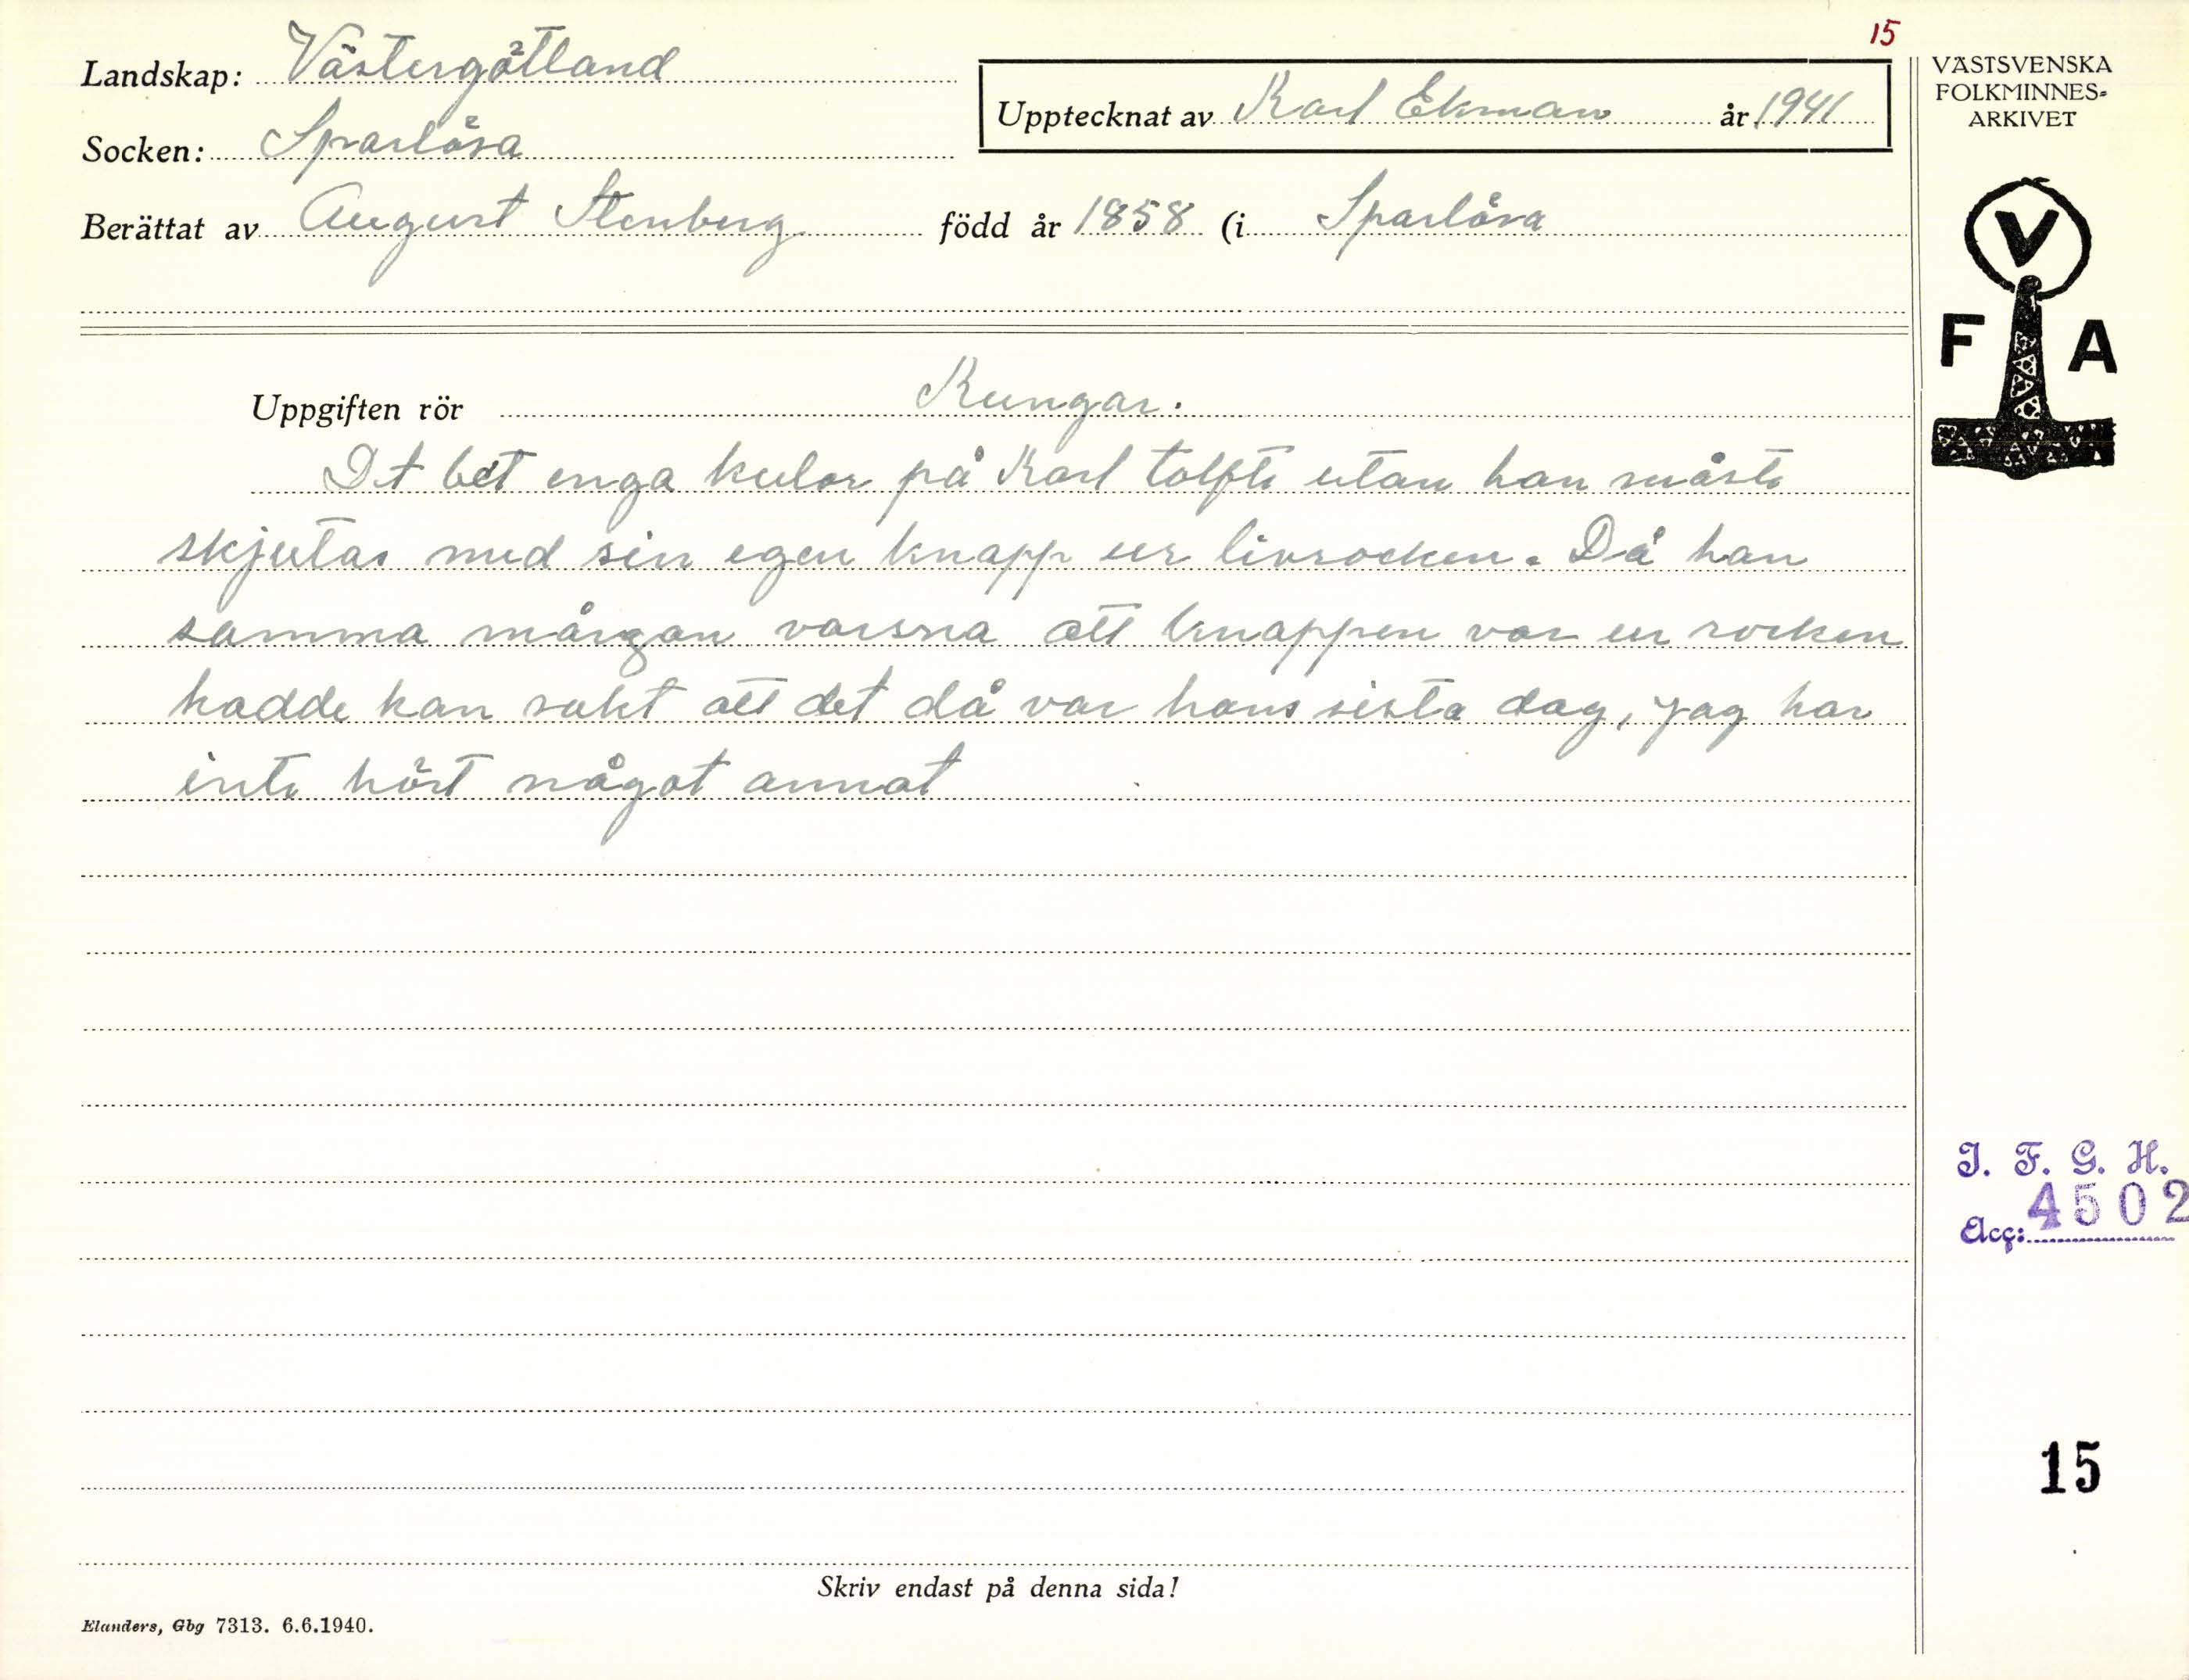 15
Landskap: Västergötland
Upptecknat av Karl Ekman år 1941
Socken: Sparlösa
Berättat av August Stenberg född år 1858 (i Sparlösa
VÄSTSVENSKA
FOLKMINNES-
ARKIVET
V
F A
Uppgiften rör Kungar.
Dt bet enga kulor på Karl tolfte utan han måste
skjutas med sin egen knapp ur livrocken. Då han
samma mårgon varsna att knappen var ur rocken
hadde han sakt att det då var hans sista dag, jag har
inte hört något annat
I. F. G. H.
Acc: 4502
15
Skriv endast på denna sida!
Elanders, Gbg 7313. 6.6.1940.